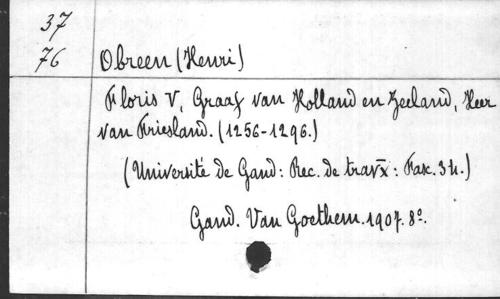 37
76 Obreen (Henri)
Floris V, Graaf van Holland en Zeeland, Heer
van Friesland. (1256-1296.)
(Université de Gand: Rec. de travx: Fasc. 34.)
Gand. Van Goethem. 1907. 8º.